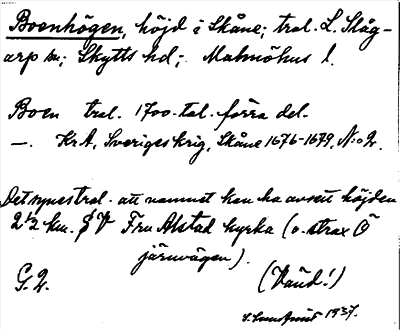 Boenhögen, höjd i Skåne; trol. L. Slåg-
arp sn; Skytts hd; Malmöhus l.
Boen trol. 1700-tal. förra del.
—. KrA, Sveriges krig, Skåne 1676-1679, N:o 2.
Det synes trol. att namnet kan ha avsett höjden
2½ km. V Fru Alstad kyrka (o. strax Ö
järnvägen).
G. 2. (Vänd!)
1937.